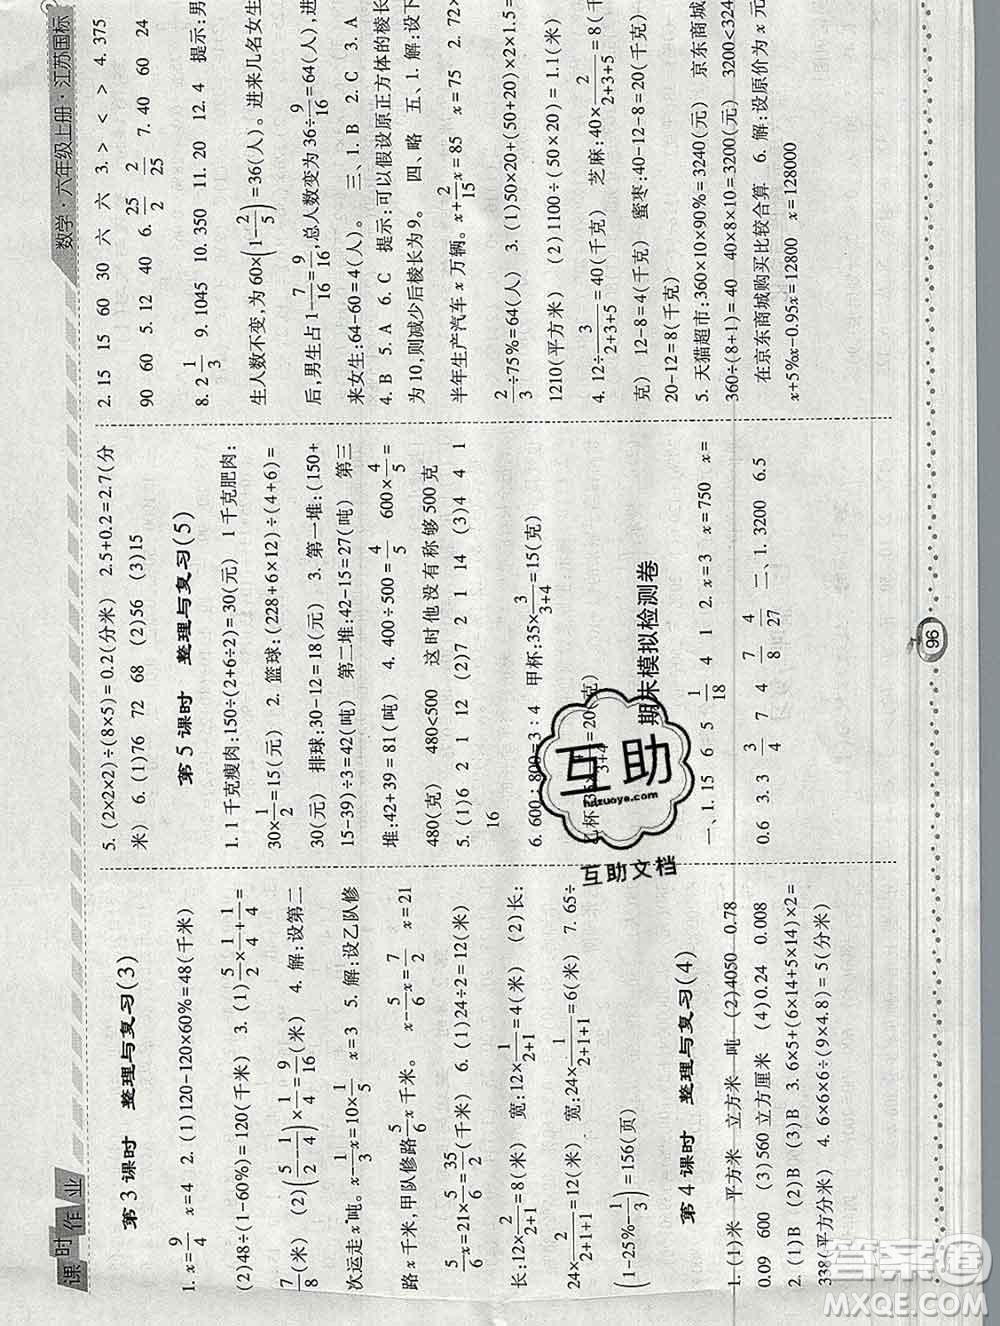 课时作业
数学·六年级上册·江苏国标
第3课时 整理与复习(3)
1. x=9/4 x=4 2. (1)120-120×60%=48(千米)
(2)48÷(1-60%)=120(千米) 3. (1)5/2×1/4+1/4=
7/8(米) (2)(5/2-1/4)×1/4=9/16(米) 4. 解:设第二
次运走x吨。x-1/3x=10×1/5 x=3 5. 解:设乙队修
路x千米,甲队修路5/6x千米。 x-5/6x=7/2 x=21
5/6x=21×5/6=35/2(千米) 6. (1)24÷2=12(米)
长:12×2/2+1=8(米) 宽:12×1/2+1=4(米) (2)长:
24×2/2+1+1=12(米) 宽:24×1/2+1+1=6(米) 7. 65÷
(1-25%-1/3)=156(页)
第4课时 整理与复习(4)
1. (1)米 平方米 立方米 吨 (2)4050 0.78
0.09 600 (3)560立方厘米 (4)0.24 0.008
2. (1)B (2)B (3)B 3. 6×5+(6×14+5×14)×2=
338(平方分米) 4. 6×6×6÷(9×4.8)=5(分米)
5. (2×2×2)÷(8×5)=0.2(分米) 2.5+0.2=2.7(分
米) 6. (1)76 72 68 (2)56 (3)15
第5课时 整理与复习(5)
1. 1千克瘦肉:150÷(2+6÷2)=30(元) 1千克肥肉:
30×1/2=15(元) 2. 篮球:(228+6×12)÷(4+6)=
30(元) 排球:30-12=18(元) 3. 第一堆:(150+
15-39)÷3=42(吨) 第二堆:42-15=27(吨) 第三
堆:42+39=81(吨) 4. 400÷500=4/5 600×4/5=
480(克) 480<500 这时他没有称够500克
5. (1)6 2 1 12 (2)7 2 1 14 (3)4 4 1
16
6. 600:800=3:4 甲杯:35×3/3+4=15(克)
乙杯:35×4/3+4=20(克)
期末模拟检测卷
一、1. 15 6 5 1/18 4 1 2. x=3 x=750 x=
0.6 3. 3 3/4 7 4 7/8 4/27 二、1. 3200 6.5
2. 15 15 60 30 六 六 3. > < > 4. 375
90 60 5. 12 40 6. 25/2 2/25 7. 40 60 24
8. 2 1/3 9. 1045 10. 350 11. 20 12. 4 提示:男
生人数不变,为60×(1-2/5)=36(人)。进来几名女生
后,男生占1-7/16=9/16,总人数变为36÷9/16=64(人),进
来女生:64-60=4(人)。 三、1. B 2. C 3. A
4. B 5. A 6. C 提示:可以假设原正方体的棱长
为10,则减少后棱长为9。 四、略 五、1. 解:设下
半年生产汽车x万辆。x+2/15x=85 x=75 2. 72×
2/3÷75%=64(人) 3. (1)50×20+(50+20)×2×1.5=
1210(平方米) (2)1100÷(50×20)=1.1(米)
4. 12÷3/2+3+5=40(千克) 芝麻:40×2/2+3+5=8(千
克) 12-8=4(千克) 蜜枣:40-12-8=20(千克)
20-12=8(千克)
5. 天猫超市:360×10×90%=3240(元) 京东商城:
360÷(8+1)=40 40×8×10=3200(元) 3240>3200
在京东商城购买比较合算 6. 解:设原价为x元
x+5%x-0.95x=12800 x=128000
96
互助
hdzuoye.com
互助文档
答案圈
MXQE.COM